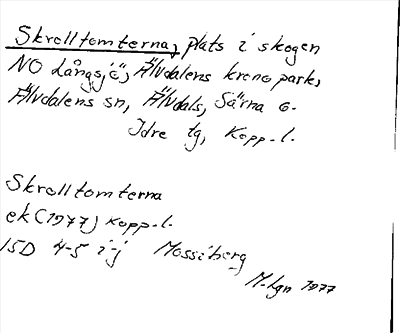 Skrolltomterna, plats i skogen
NO Långsjö, Älvdalens kronopark,
Älvdalens sn, Älvdals, Särna o.
Idre tg, Kopp. l.
Skrolltomterna
ek (1977) Kopp. l.
15D 4-5 i-j Mossiberg
M-lgn 1977